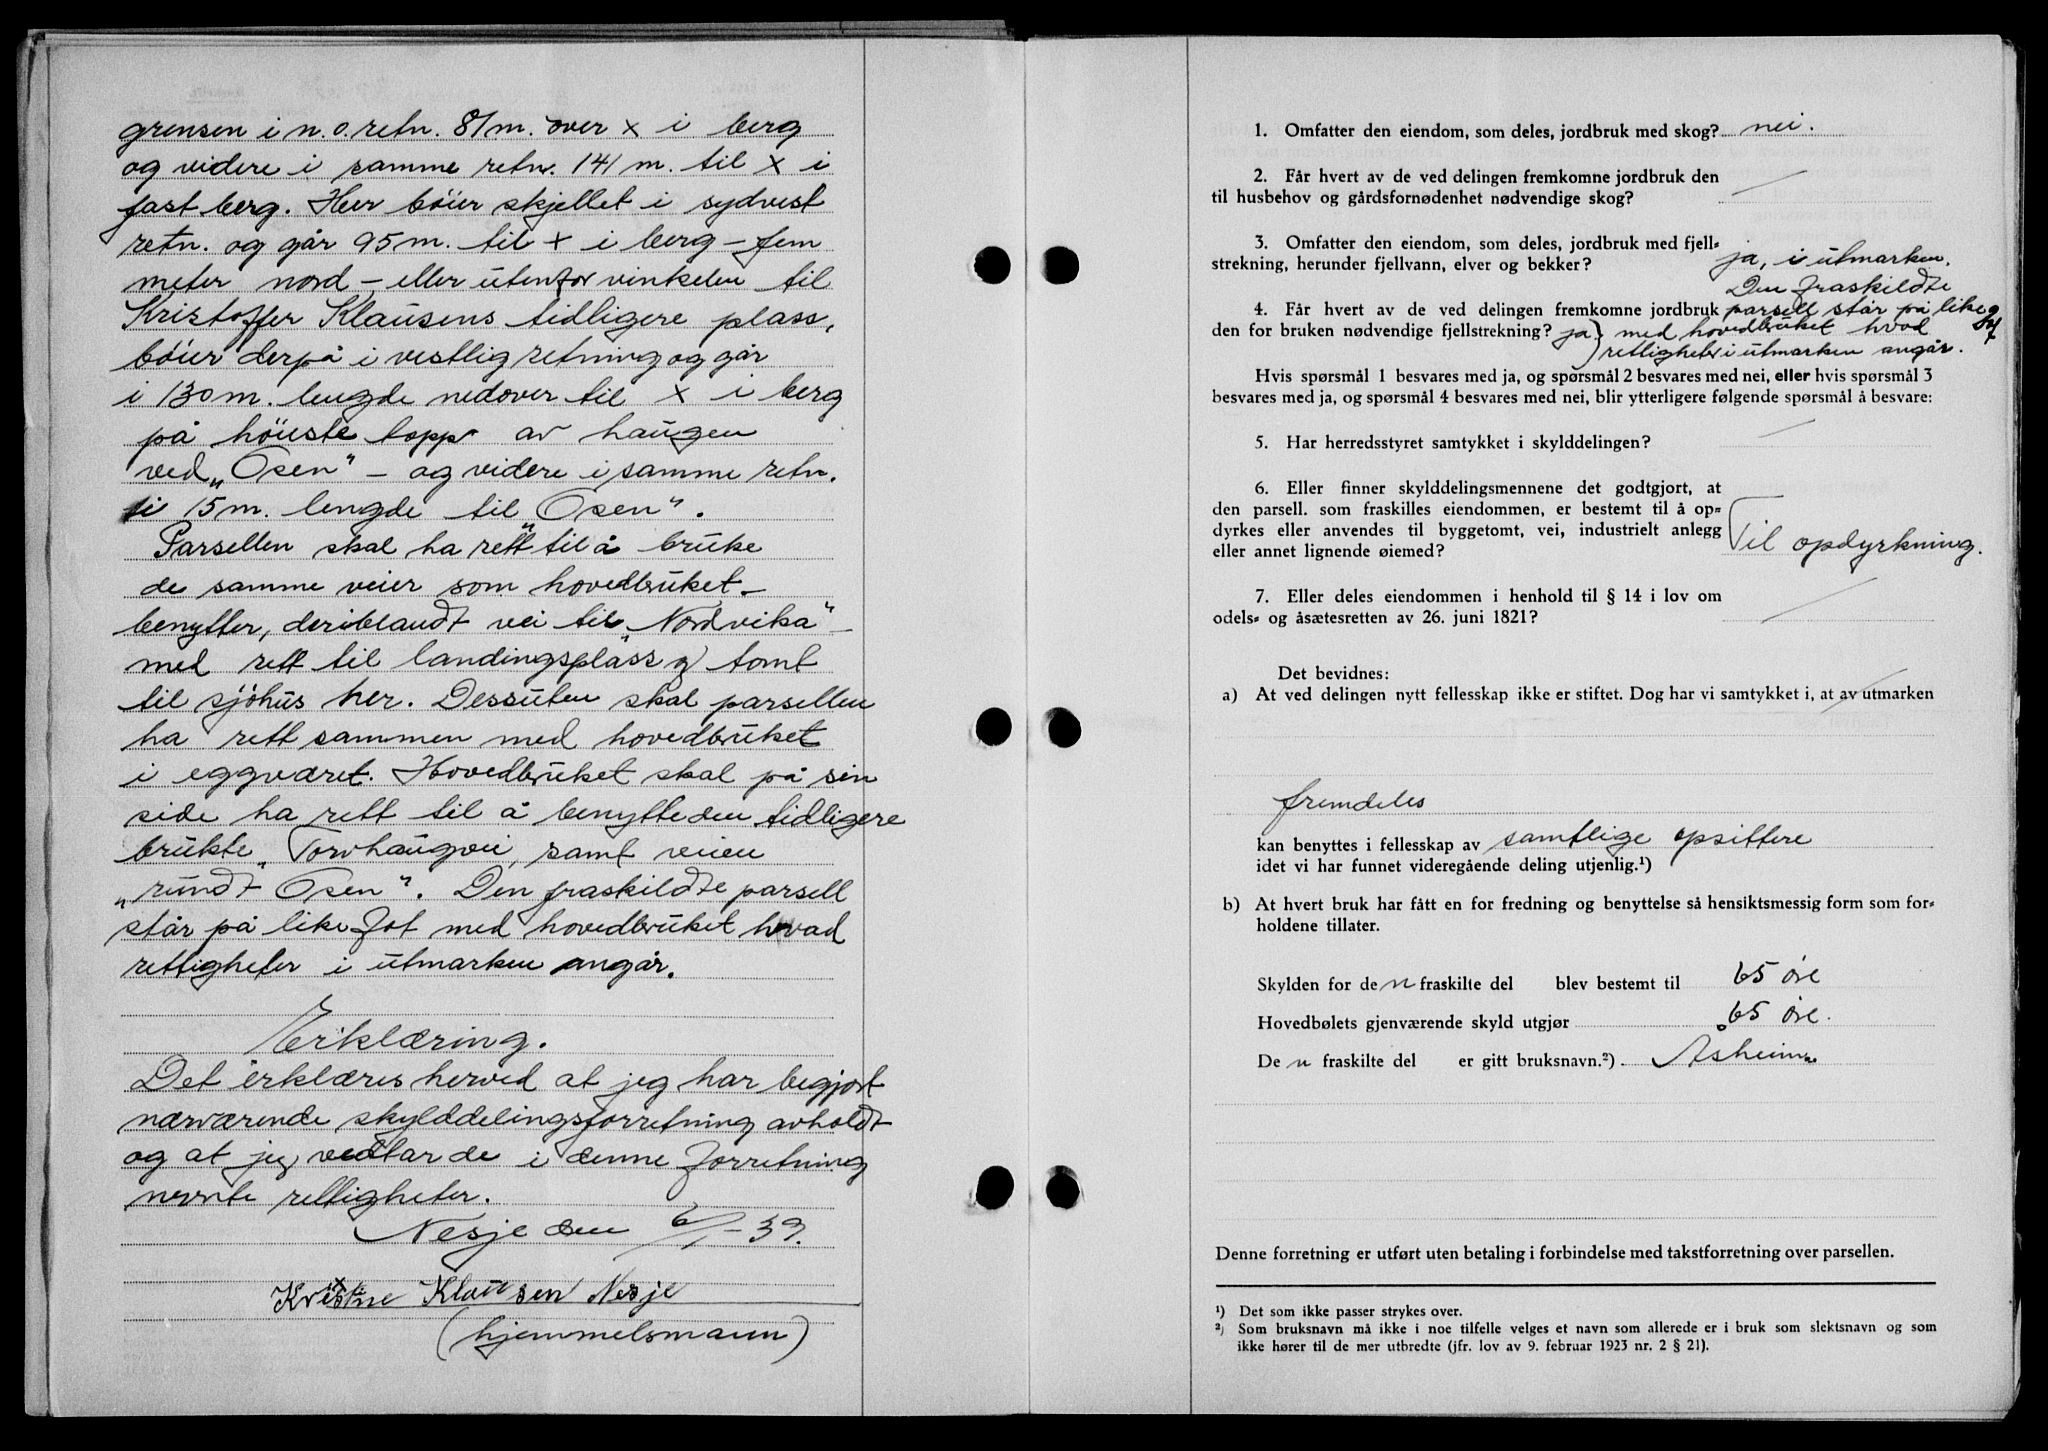 grensen i n.o. retn. 81 m. over x i berg
og videre i samme retn. 141 m. til x i
fast berg. Her böier skjellet i sydvest
retn. og går 95 m. til x i berg – fem
meter nord – eller utenfor vinkelen til
Kristoffer Klausens tidligere plass,
böier derpå i vestlig retning og går
i 130 m. lengde nedover til x i berg
på höieste topp av haugen
ved „Osen" – og videre i samme retn.
i 15 m. lengde til „Osen".
Parsellen skal ha rett til å bruke
de samme veier som hovedbruket
benytter, deriblandt vei til „Nordvika"
med rett til landingsplass og tomt
til sjöhus her. Dessuten skal parsellen
ha rett sammen med hovedbruket
i eggværet. Hovedbruket skal på sin
side ha rett til å benytte den tidligere
brukte „Torvhaugvei, samt veien
„rundt Osen". Den fraskildte parsell
står på like fot med hovedbruket hvad
rettigheter i utmarken angår.
Erklæring.
Det erklæres herved at jeg har begjært
nærværende skylddelingsforretning avholdt
og at jeg vedtar de i denne forretning
nevnte rettigheter.
Nesje den 6/1–39.
Kristine Klausen Nesje
(hjemmelsmann)
1. Omfatter den eiendom, som deles, jordbruk med skog? nei.
2. Får hvert av de ved delingen fremkomne jordbruk den
til husbehov og gårdsfornødenhet nødvendige skog?
3. Omfatter den eiendom, som deles, jordbruk med fjell-
strekning, herunder fjellvann, elver og bekker? ja, i utmarken.
Den fraskildte
4. Får hvert av de ved delingen fremkomne jordbruk parsell står på like
den for bruken nødvendige fjellstrekning? ja) med hovedbruket hvad
rettigheter i utmarken angår.
Hvis spørsmål 1 besvares med ja, og spørsmål 2 besvares med nei, eller hvis spørsmål 3
besvares med ja, og spørsmål 4 besvares med nei, blir ytterligere følgende spørsmål å besvare:
5. Har herredsstyret samtykket i skylddelingen?
6. Eller finner skylddelingsmennene det godtgjort, at
den parsell. som fraskilles eiendommen, er bestemt til å op-
dyrkes eller anvendes til byggetomt, vei, industrielt anlegg
eller annet lignende øiemed? Til opdyrkning.
7. Eller deles eiendommen i henhold til § 14 i lov om
odels- og åsætesretten av 26. juni 1821?
Det bevidnes:
a) At ved delingen nytt fellesskap ikke er stiftet. Dog har vi samtykket i, at av utmarken
fremdeles
kan benyttes i fellesskap av samtlige opsittere
idet vi har funnet videregående deling utjenlig.¹)
b) At hvert bruk har fått en for fredning og benyttelse så hensiktsmessig form som for-
holdene tillater.
Skylden for den fraskilte del blev bestemt til 65 öre
Hovedbølets gjenværende skyld utgjør 65 öre.
Den fraskilte del er gitt bruksnavn.²) Åsheim
Denne forretning er utført uten betaling i forbindelse med takstforretning over parsellen.
¹) Det som ikke passer strykes over.
²) Som bruksnavn må ikke i noe tilfelle velges et navn som allerede er i bruk som slektsnavn og som
ikke hører til de mer utbredte (jfr. lov av 9. februar 1923 nr. 2 § 21).